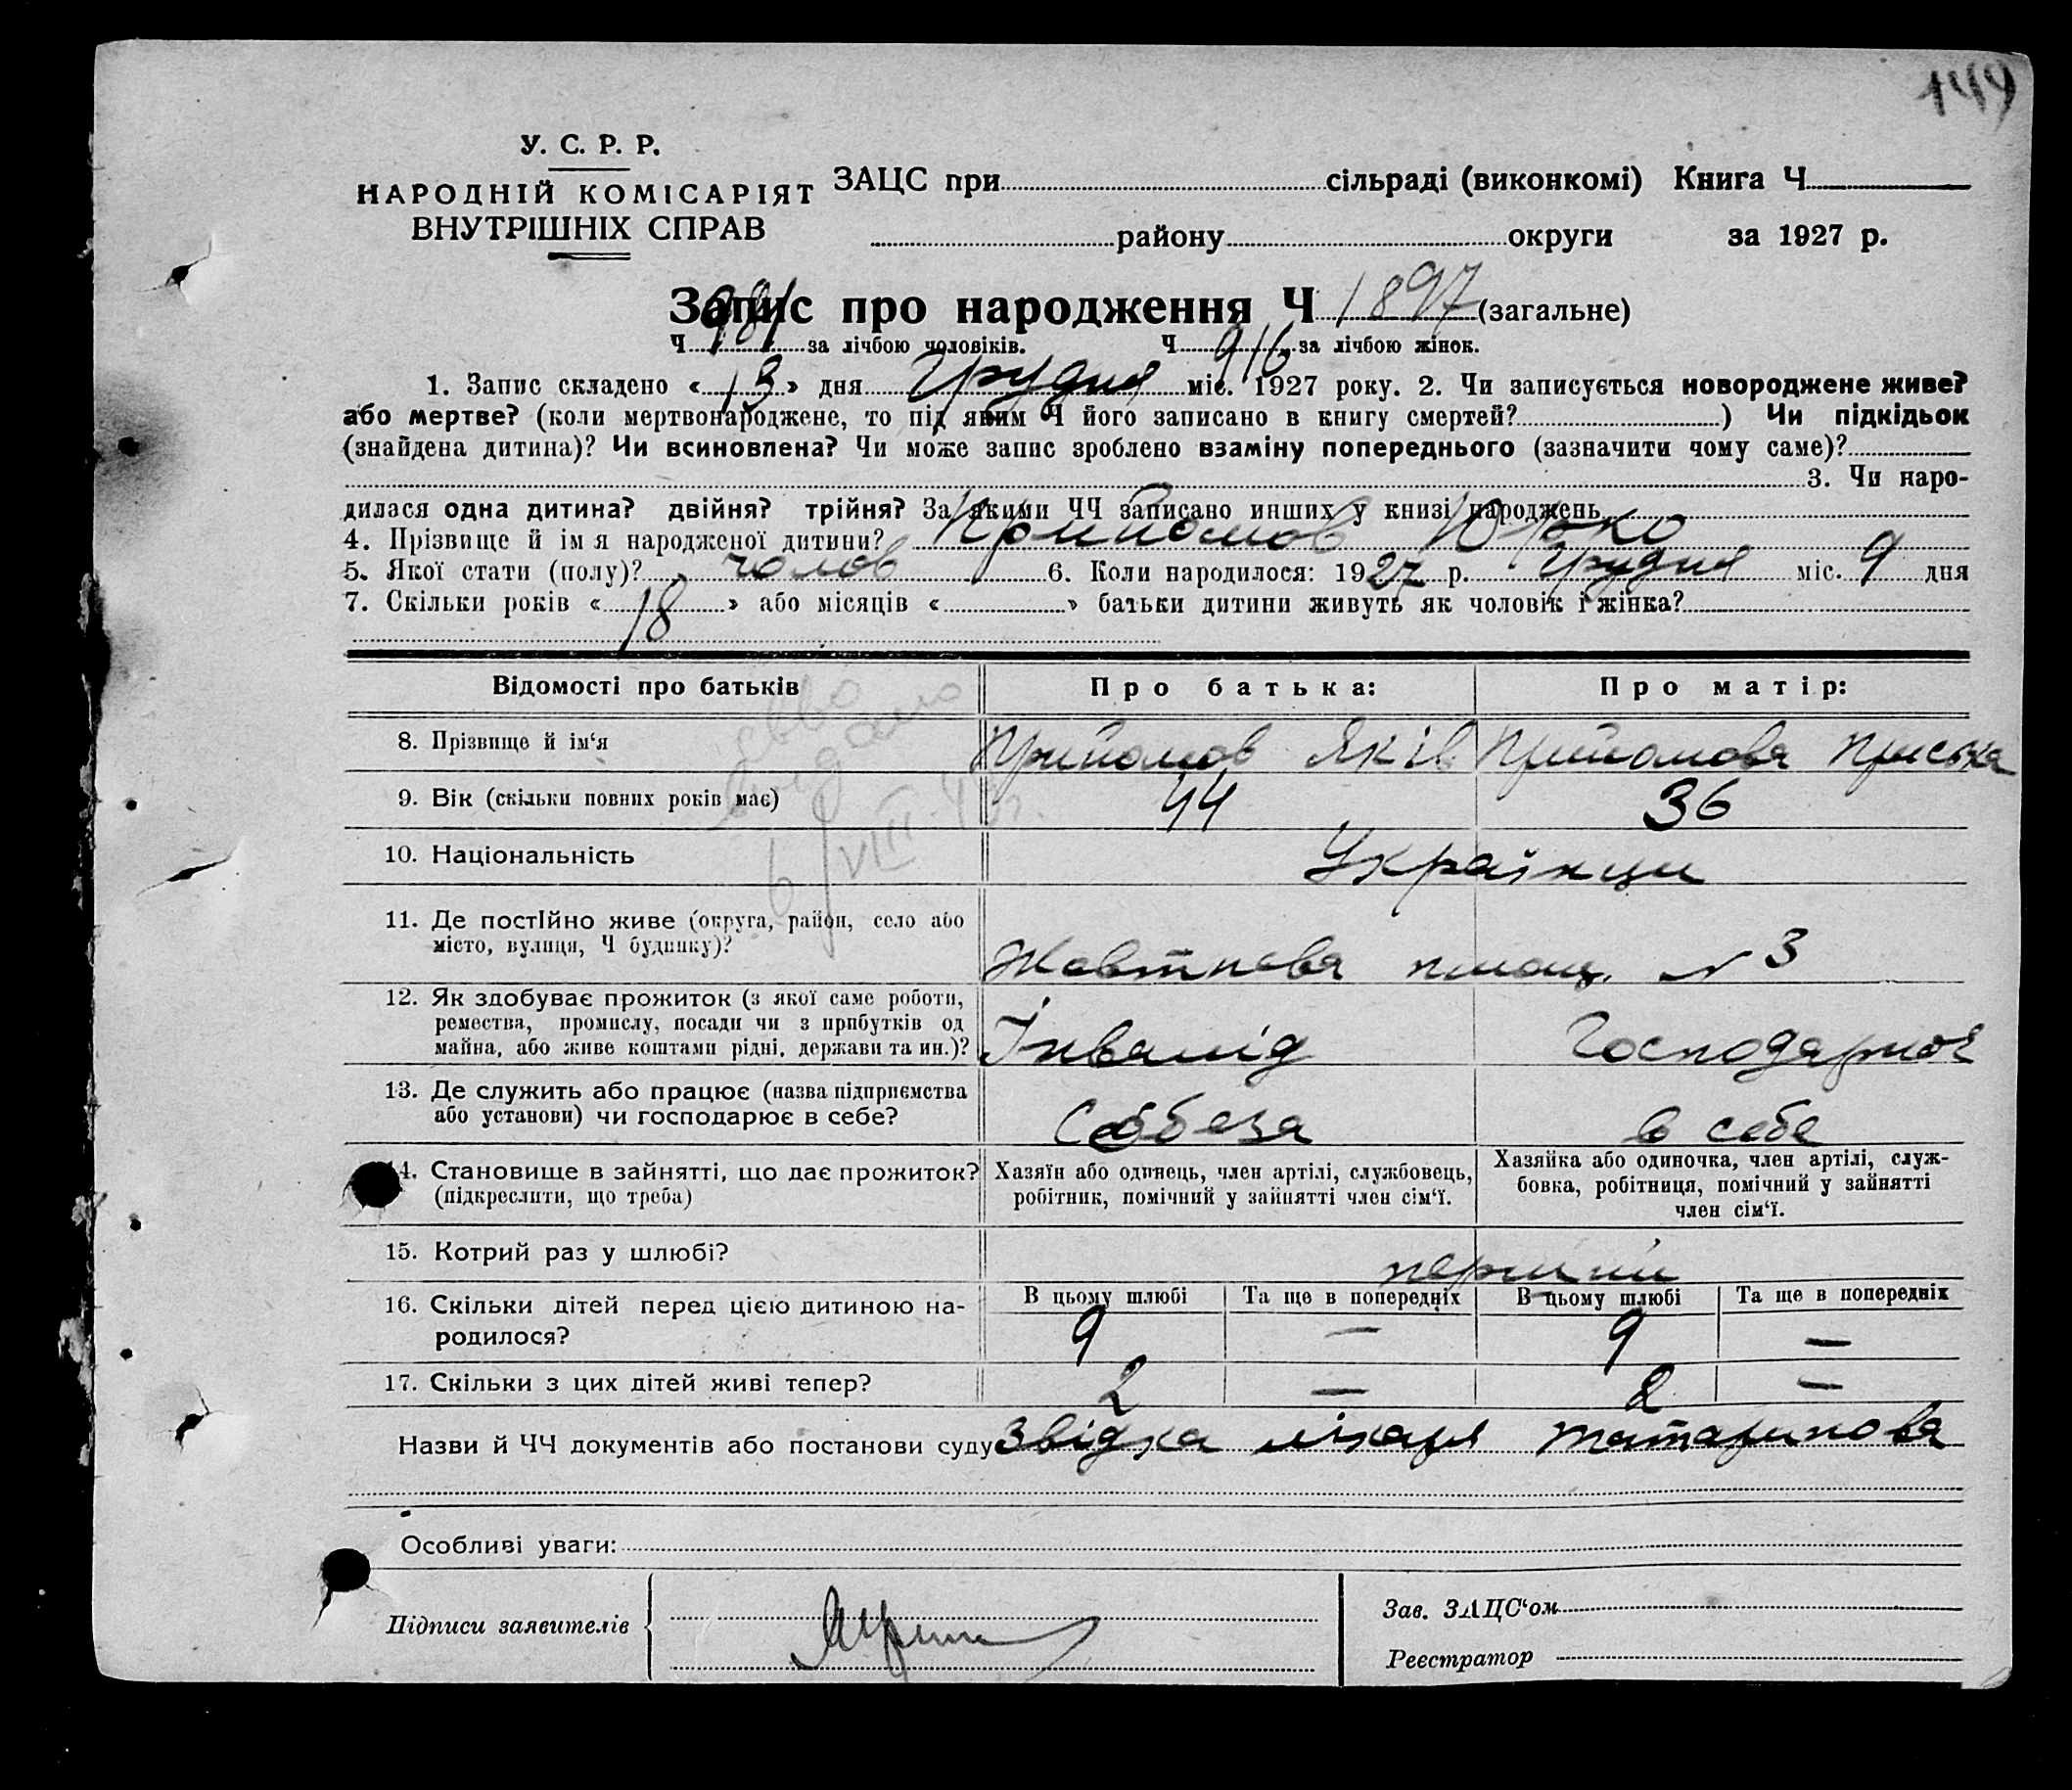 149
У. С. Р. Р.
НАРОДНІЙ КОМІСАРІЯТ
ВНУТРІШНІХ СПРАВ
ЗАЦС при сільраді (виконкомі) Книга Ч
району округи за 1927 р.
Запис про народження Ч 1897 (загальне)
Ч 981 за лічбою чоловіків. Ч 916 за лічбою жінок.
1. Запис складено « 13 » дня Грудня міс. 1927 року. 2. Чи записується новороджене живе?
або мертве? (коли мертвонароджене, то під яким Ч його записано в книгу смертей? ) Чи підкідьок
(знайдена дитина)? Чи всиновлена? Чи може запис зроблено взаміну попереднього (зазначити чому саме)?
3. Чи наро-
дилася одна дитина? двійня? трійня? За якими ЧЧ записано инших у книзі народжень
4. Прізвище й ім я народженої дитини? Прийомов Юрко
5. Якої стати (полу)? чолов 6. Коли народилося: 1927 р. Грудня міс. 9 дня
7. Скільки років « 18 » або місяців « » батьки дитини живуть як чоловік і жінка?
Відомості про батьків Про батька: Про матір:
8. Прізвище й ім‘я Прийомов Яків Прийомова Приська
9. Вік (скільки повних років має) 44 36
видано
6/VIII
10. Національність Українци
11. Де постійно живе (округа, район, село або
місто, вулиця, Ч будинку)? Жовтнева площ. № 3
12. Як здобуває прожиток (з якої саме роботи,
ремества, промислу, посади чи з прибутків од
майна, або живе коштами рідні, держави та ин.)? Інвалід Господарює
13. Де служить або працює (назва підприємства
або установи) чи господарює в себе? Собеза в себе
14. Становище в зайнятті, що дає прожиток?
(підкреслити, що треба)
Хазяїн або одинець, член артілі, службовець,
робітник, помічний у зайнятті член сім‘ї.
Хазяйка або одиночка, член артілі, служ-
бовка, робітниця, помічний у зайнятті
член сім‘ї.
15. Котрий раз у шлюбі? перший
16. Скільки дітей перед цією дитиною на-
родилося?
В цьому шлюбі Та ще в попередніх В цьому шлюбі Та ще в попередніх
9 — 9 —
17. Скільки з цих дітей живі тепер? 2 — 2 —
Назви й ЧЧ документів або постанови суду Звідка лікаря Татаринова
Особливі уваги:
Підписи заявителів
Зав. ЗАЦС‘ом
Реєстратор